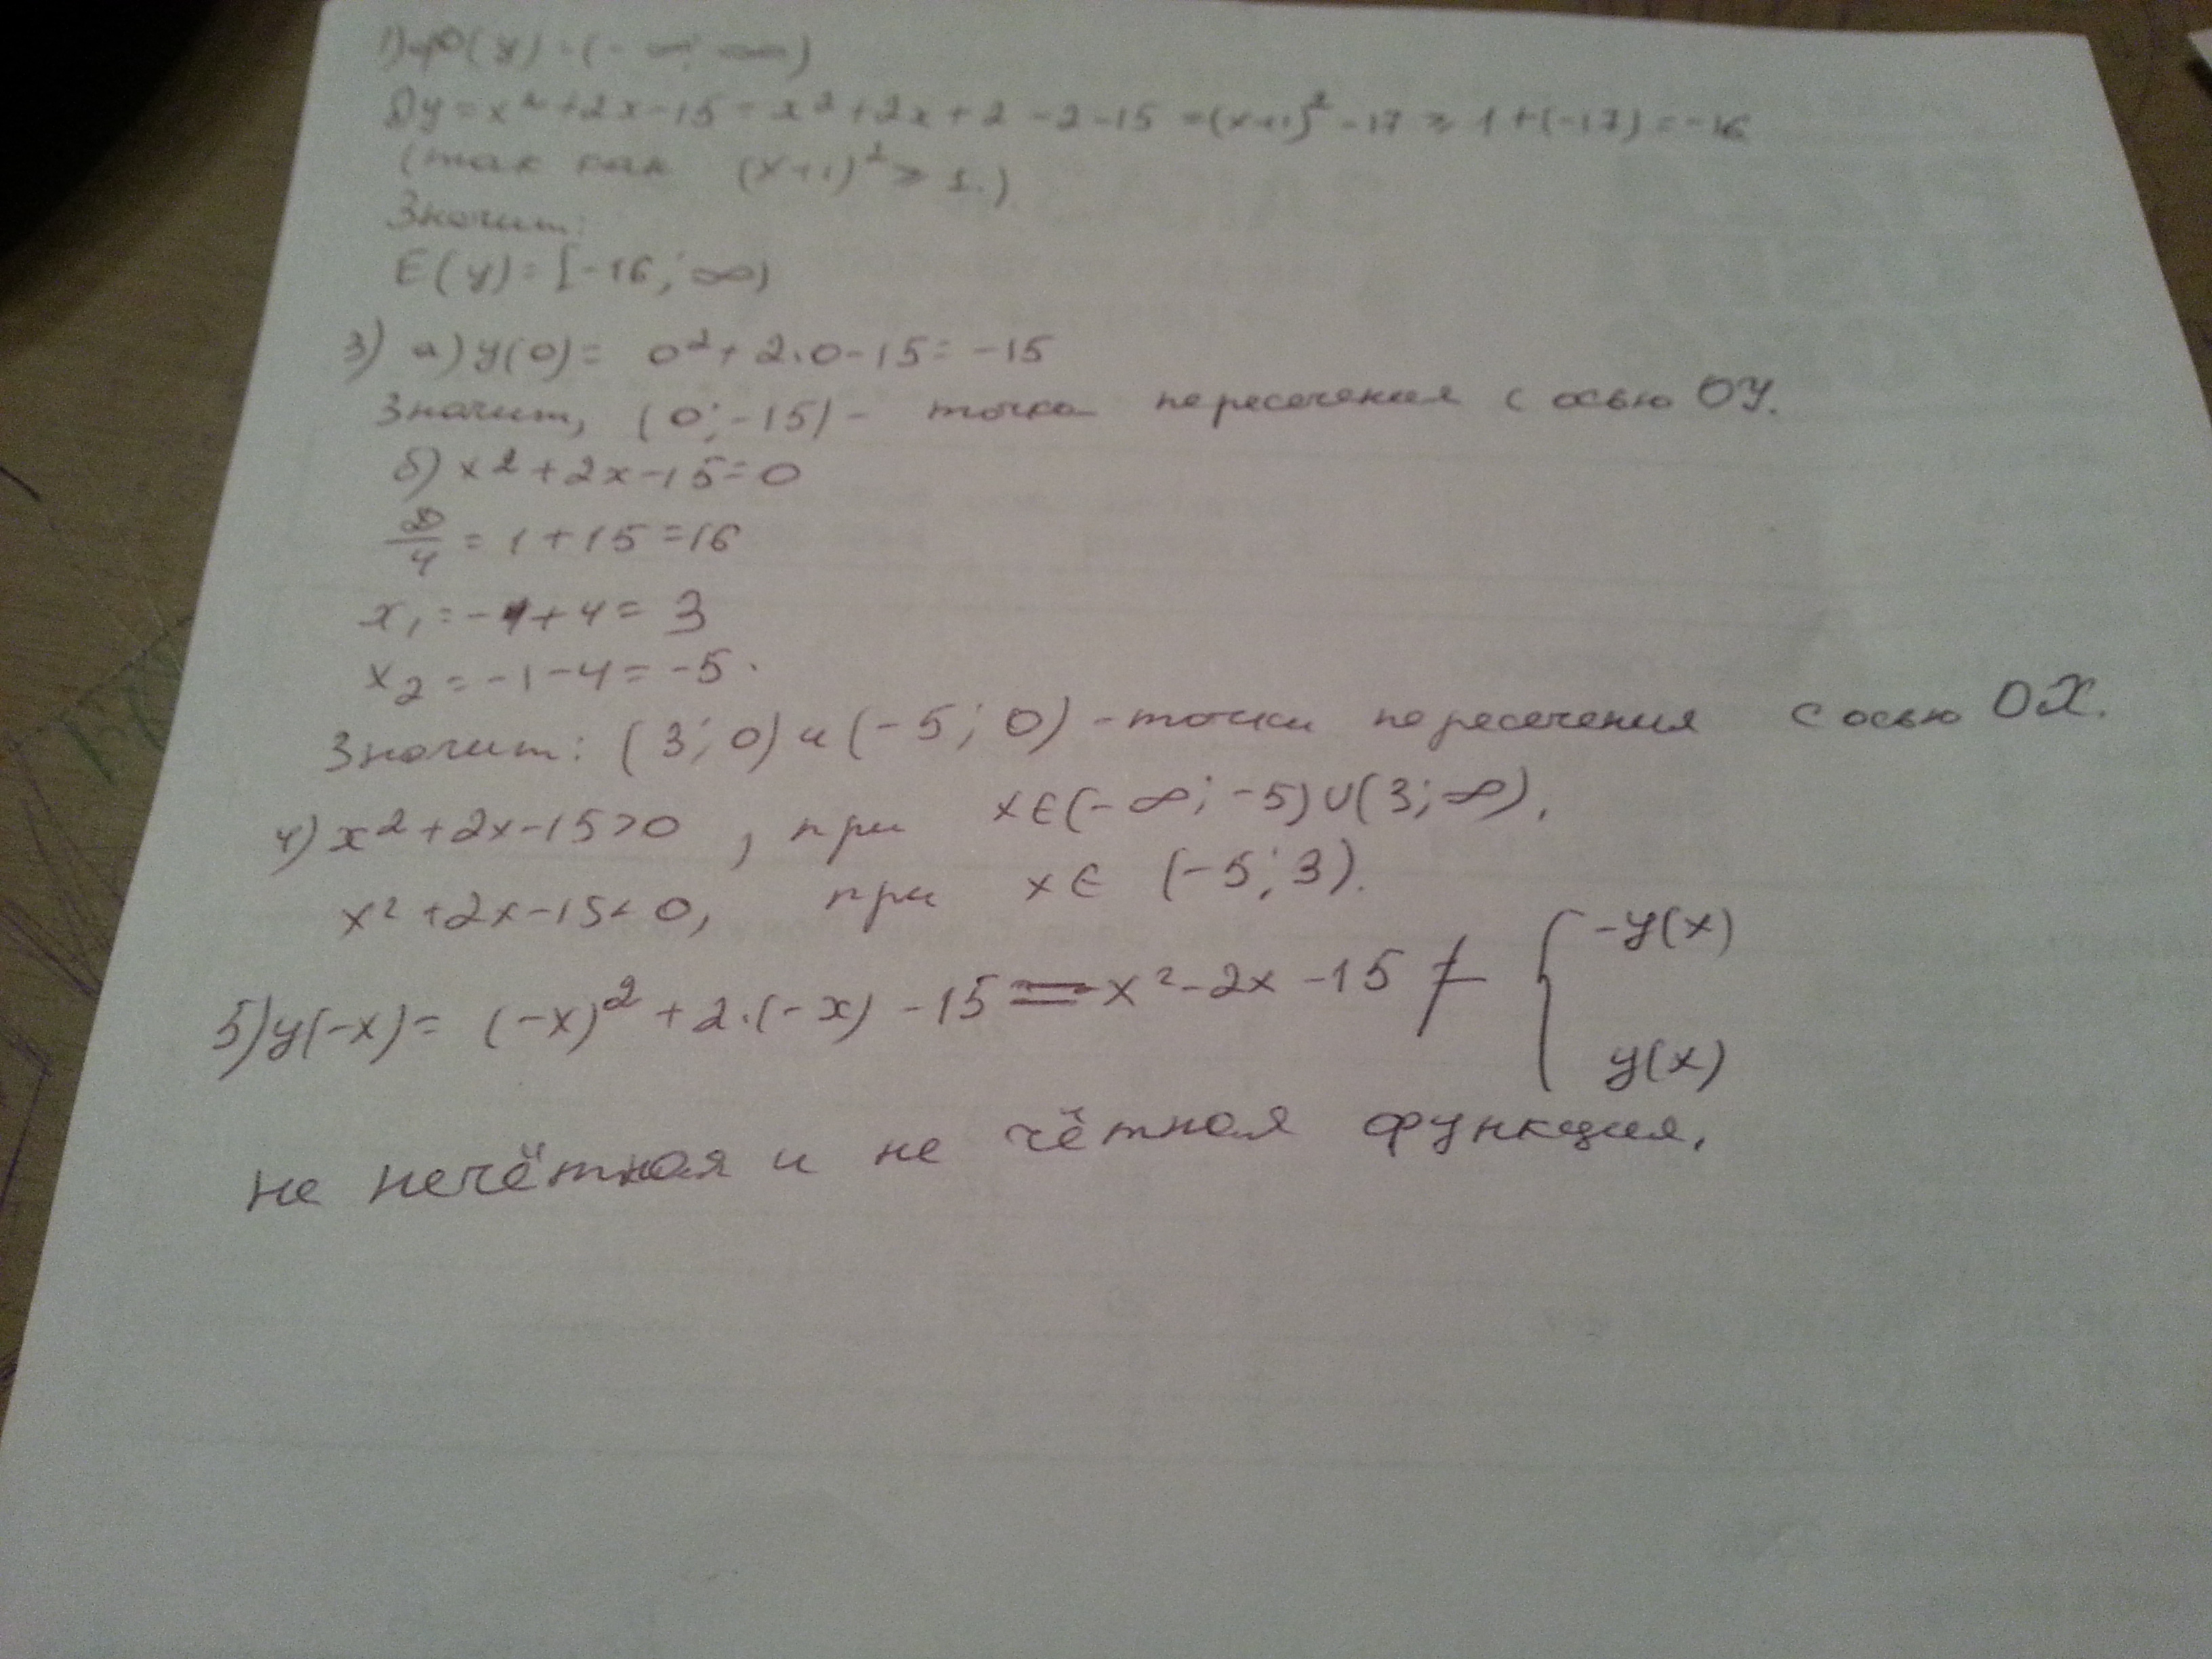 1) D(y)=(-∞; ∞)
2) y = x² + 2x - 15 = x² + 2x + 2 - 2 - 15 = (x+1)² - 17 ≥ 1 + (-17) = -16
(так как (x+1)² ≥ 1.)
Значит:
E(y) = [-16; ∞)
3) а) y(0) = 0² + 2·0 - 15 = -15
Значит, (0; -15) - точка пересечения с осью OY.
б) x² + 2x - 15 = 0
D/4 = 1 + 15 = 16
x₁ = -1 + 4 = 3
x₂ = -1 - 4 = -5.
Значит: (3; 0) и (-5; 0) - точки пересечения с осью OX.
4) x² + 2x - 15 > 0, при x ∈ (-∞; -5) ∪ (3; ∞).
x² + 2x - 15 < 0, при x ∈ (-5; 3).
5) y(-x) = (-x)² + 2·(-x) - 15 = x² - 2x - 15 ≠ { -y(x)
y(x)
не нечётная и не чётная функция.